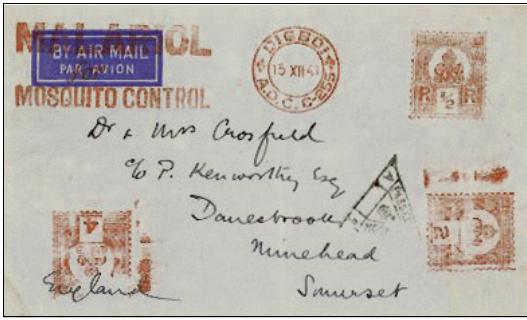 MALARIOL
BY AIR MAIL
PAR AVION
MOSQUITO CONTROL
DIGBOI
15 XII 41
A.D.C. C-255
R ½ R
Dr & Mrs Crosfield
c/o P. Kenworthy Esq
Danesbrook
Minehead
Somerset
England
A
4
2